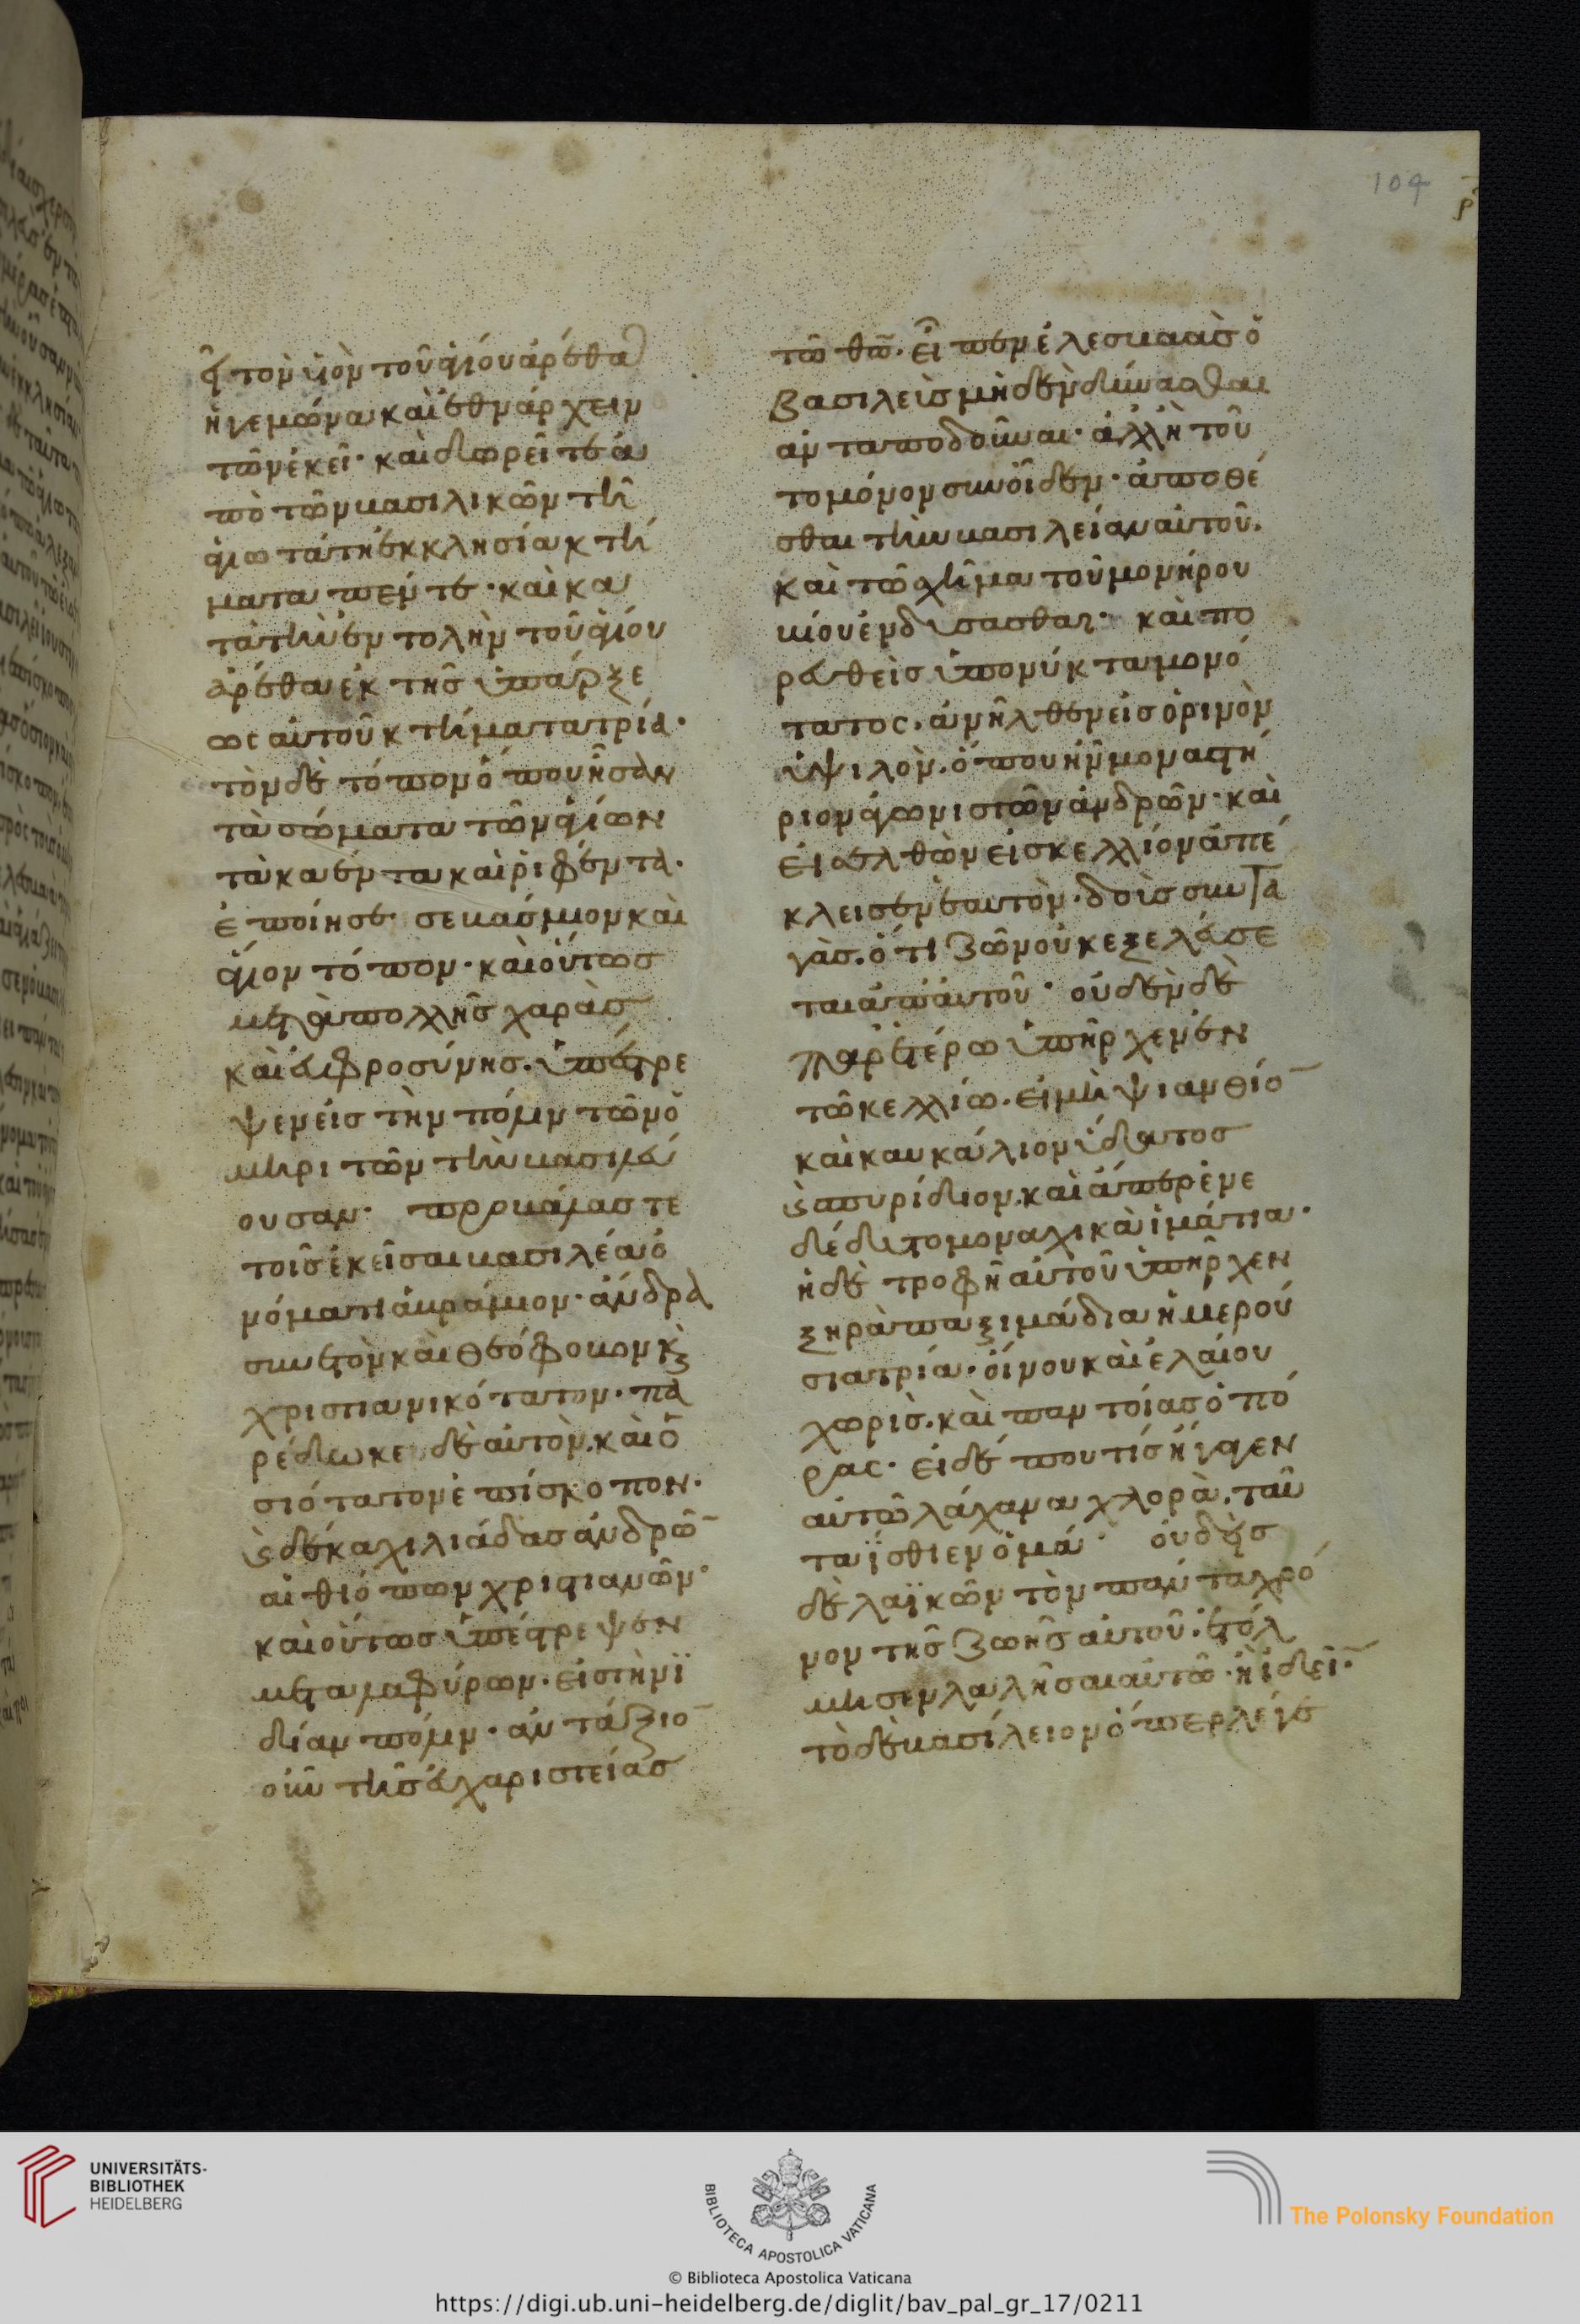 ϗ τὸν υἱὸν τοῦ ἁγίου ἀρέθα
ἡγεμώνα καὶ ἐθνάρχειν
τῶν ἐκεῖ· καὶ δωρεῖτε ἀ
πὸ τῶν βασιλικῶν τῆ
ἁγιωτάτη ἐκκλησία κτή
ματα πέντε· καὶ κα
τὰ τὴν ἐντολὴν τοῦ ἁγίου
ἀρέθα ἐκ τῆς ὑπάρξε
ως αὐτοῦ κτήματα τρία·
τὸν δὲ τόπον ὅπου ἦσαν
τὰ σώματα τῶν ἁγίων
τὰ καέντα καὶ ῥιφέντα·
ἐποίησε σεβάσμιον καὶ
ἅγιον τόπον· καὶ οὕτως
μετὰ πολλῆς χαρὰς
καὶ εὐφροσύνης. ὑπέστρε
ψεν εἰς τὴν πόλιν τῶν ὁ
μηριτῶν τὴν βασιλεύ
ουσαν· προβάλαστε
τοῖς ἐκεῖσαι βασιλέα ὀ
νόματι ἀβράμιον· ἄνδρα
συνετὸν καὶ θεόφοβον ϗ
χριστιανικότατον· πα
ρέδωκε δὲ αὐτὸν καὶ ὁ
σιότατον ἐπίσκοπον·
ϛ δέκα χιλιάδας ἀνδρῶ̄
αἰθιόπων χριστιανῶν·
καὶ οὕτως ὑπέστρεψεν
μετὰ λαφύρων· εἰς τὴν ϊ
δίαν πόλιν· ἀντάξιο̄
οὖν τῆς εὐχαριστείας
τῶ θ̅ω̅· εἶπεν ἐλεσβαὰς ὁ
βασιλεὺς μὴδὲν δύνασθαι
ἀνταποδοῦναι· ἀλλὴ τοῦ
το μόνον συνοῖδεν· ἀποθέ
σθαι τὴν βασιλείαν αὐτοῦ.
καὶ τῶ σχῆμα τοῦ μονήρου
βίου ἐνδύσασθαι· καὶ πο
ρευθεὶς ὑπὸ νύκτα μονό
τατος. ἀνῆλθεν εἰς ὀρινὸν
ὑψιλὸν. ὅπου ἦν μοναστή
ριον ἀγωνιστῶν ἀνδρῶν· καὶ
εἰσελθὼν εἰς κελλίον ἀπέ
κλεισεν ἑαυτὸν· δοὺς συντα
γὰς. ὅτι ζῶν οὐκ ἐξελεύσε
ται ἀπ' αὐτοῦ· οὐδὲν δὲ
παρετέρω ὑπῆρχεν ἐν
τῶ κελλίω. εἰ μὴ ψιάνθιο̄
καὶ καυκάλιον ὕδατος
ϛ σπυρίδιον. καὶ ἅπερ ἐνε
δέδυτο μοναχικὰ ἱμάτια·
ἡ δὲ τροφὴ αὐτοῦ ὑπῆρχεν
ξηρὰ παξιμάδια ἡμερού
σια τρία· οἴνου καὶ ἐλαίου
χωρὶς. καὶ παντοίας ὀπό
ρας· εἰ δέ που τίς ἤγαγεν
αὐτῶ λάχανα χλορὰ. ταῦ
τα ἴσθιεν ὀμά· οὐδεὶς
δὲ λαϊκῶν τὸν πάντα χρό
νον τῆς ζωῆς αὐτοῦ. ἐτόλ
μησεν λαλῆσαι αὐτῶ· ἢ ἰδεῖ̄·
τὸ δὲ βασίλειον ὅπερ λέγε
104
ρ
UNIVERSITÄTS-
BIBLIOTHEK
HEIDELBERG
BIBLIOTECA APOSTOLICA VATICANA
The Polonsky Foundation
© Biblioteca Apostolica Vaticana
https://digi.ub.uni-heidelberg.de/diglit/bav_pal_gr_17/0211